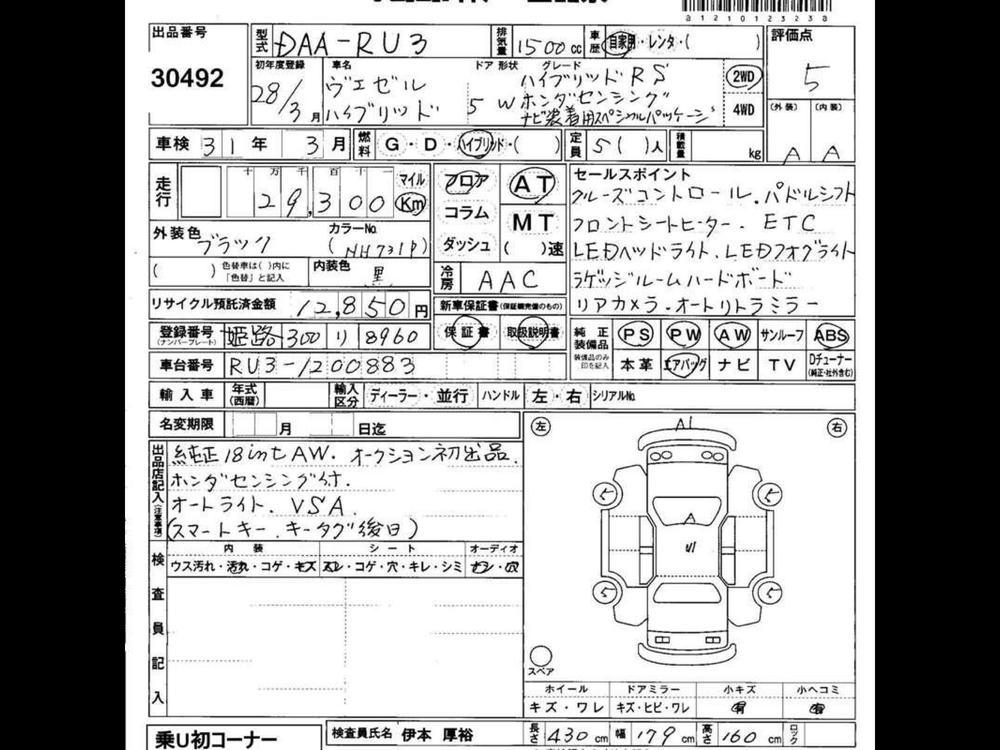 a1210123238
出品番号
30492
型式 DAA-RU3
排気量 1500 cc
車歴 自家用・レンタ・( )
評価点
5
初年度登録 28/3月
車名 ヴェゼル
ハイブリッド
ドア 形状 5 W
グレード ハイブリッド RS
ホンダセンシング
ナビ装着用スペシャルパッケージ
2WD
4WD
(外装) (内装)
A A
車検 31年 3月
燃料 G・D・ハイブリッド・( )
定員 5( )人
積載量 kg
走行 十万千百十一
29,300
マイル
Km
フロア
コラム
ダッシュ
AT
MT
( )速
セールスポイント
クルーズコントロール.パドルシフト
フロントシートヒーター. ETC
LEDヘッドライト.LEDフォグライト
ラゲッジルームハードボード
リアカメラ.オートリトラミラー
外装色 ブラック
カラーNo.
(NH731P)
( ) 色替車は( )内に
「色替」と記入
内装色 黒
冷房 AAC
リサイクル預託済金額 12,850円
新車保証書(保証継続完備のもの)
保証書 取扱説明書
登録番号 姫路 300 り 8960
(ナンバープレート)
純正装備品 PS PW AW サンルーフ ABS
装備品のみ
印を記入
本革 エアバッグ ナビ TV Dチューナー
(純正・社外含む)
車台番号 RU3-1200883
輸入車 年式
(西暦)
輸入区分 ディーラー・並行 ハンドル 左・右 シリアルNo.
名変期限 月 日迄
出品店記入(注意事項)
純正18intAW. オークション初出品.
ホンダセンシング付.
オートライト. VSA.
(スマートキー. キータグ後日)
検査員記入
内装 シート オーディオ
ウス汚れ・汚れ・コゲ・キズ スレ・コゲ・穴・キレ・シミ ナシ・穴
左 右
A1
5 5
A
U1
5 5
スペア
ホイール ドアミラー 小キズ 小ヘコミ
キズ・ワレ キズ・ヒビ・ワレ 有
乗U初コーナー
検査員氏名 伊本 厚裕
長さ 430 cm 幅 179 cm 高さ 160 cm
ロック